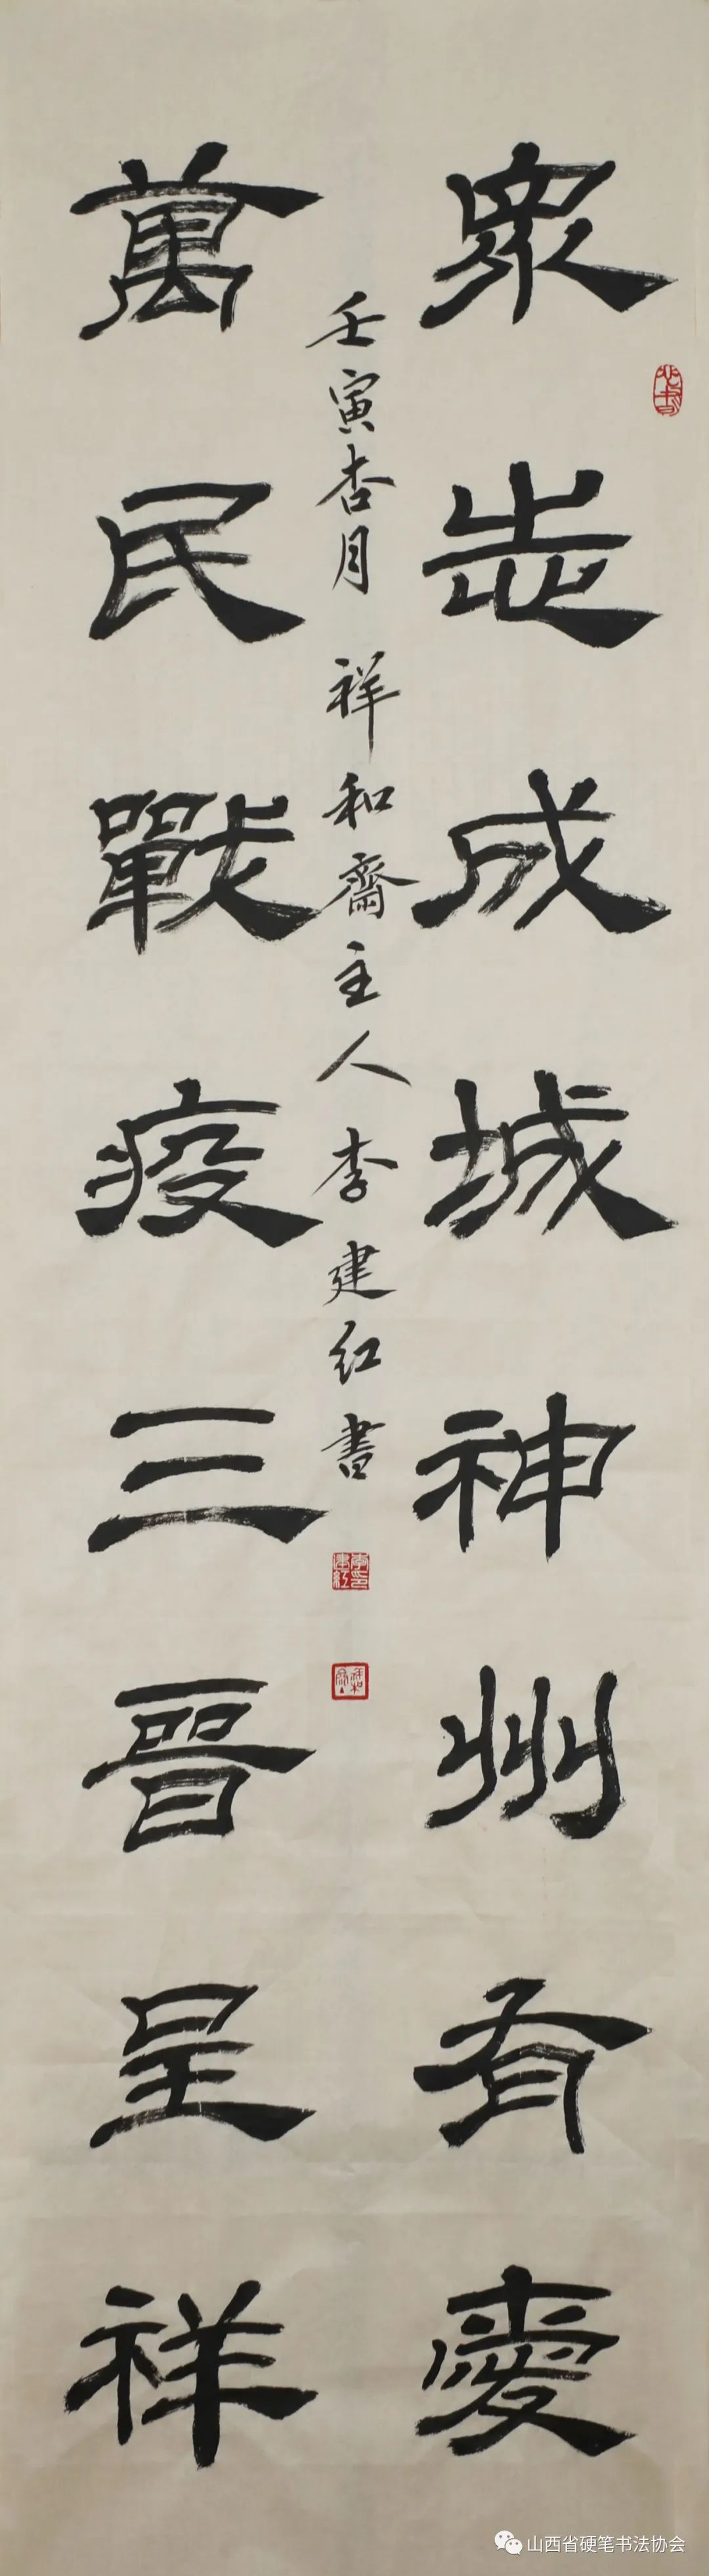 眾志成城神州有愛
萬民戰疫三晉呈祥
壬寅杏月 祥和齋主人李建红書
山西省硬笔书法协会